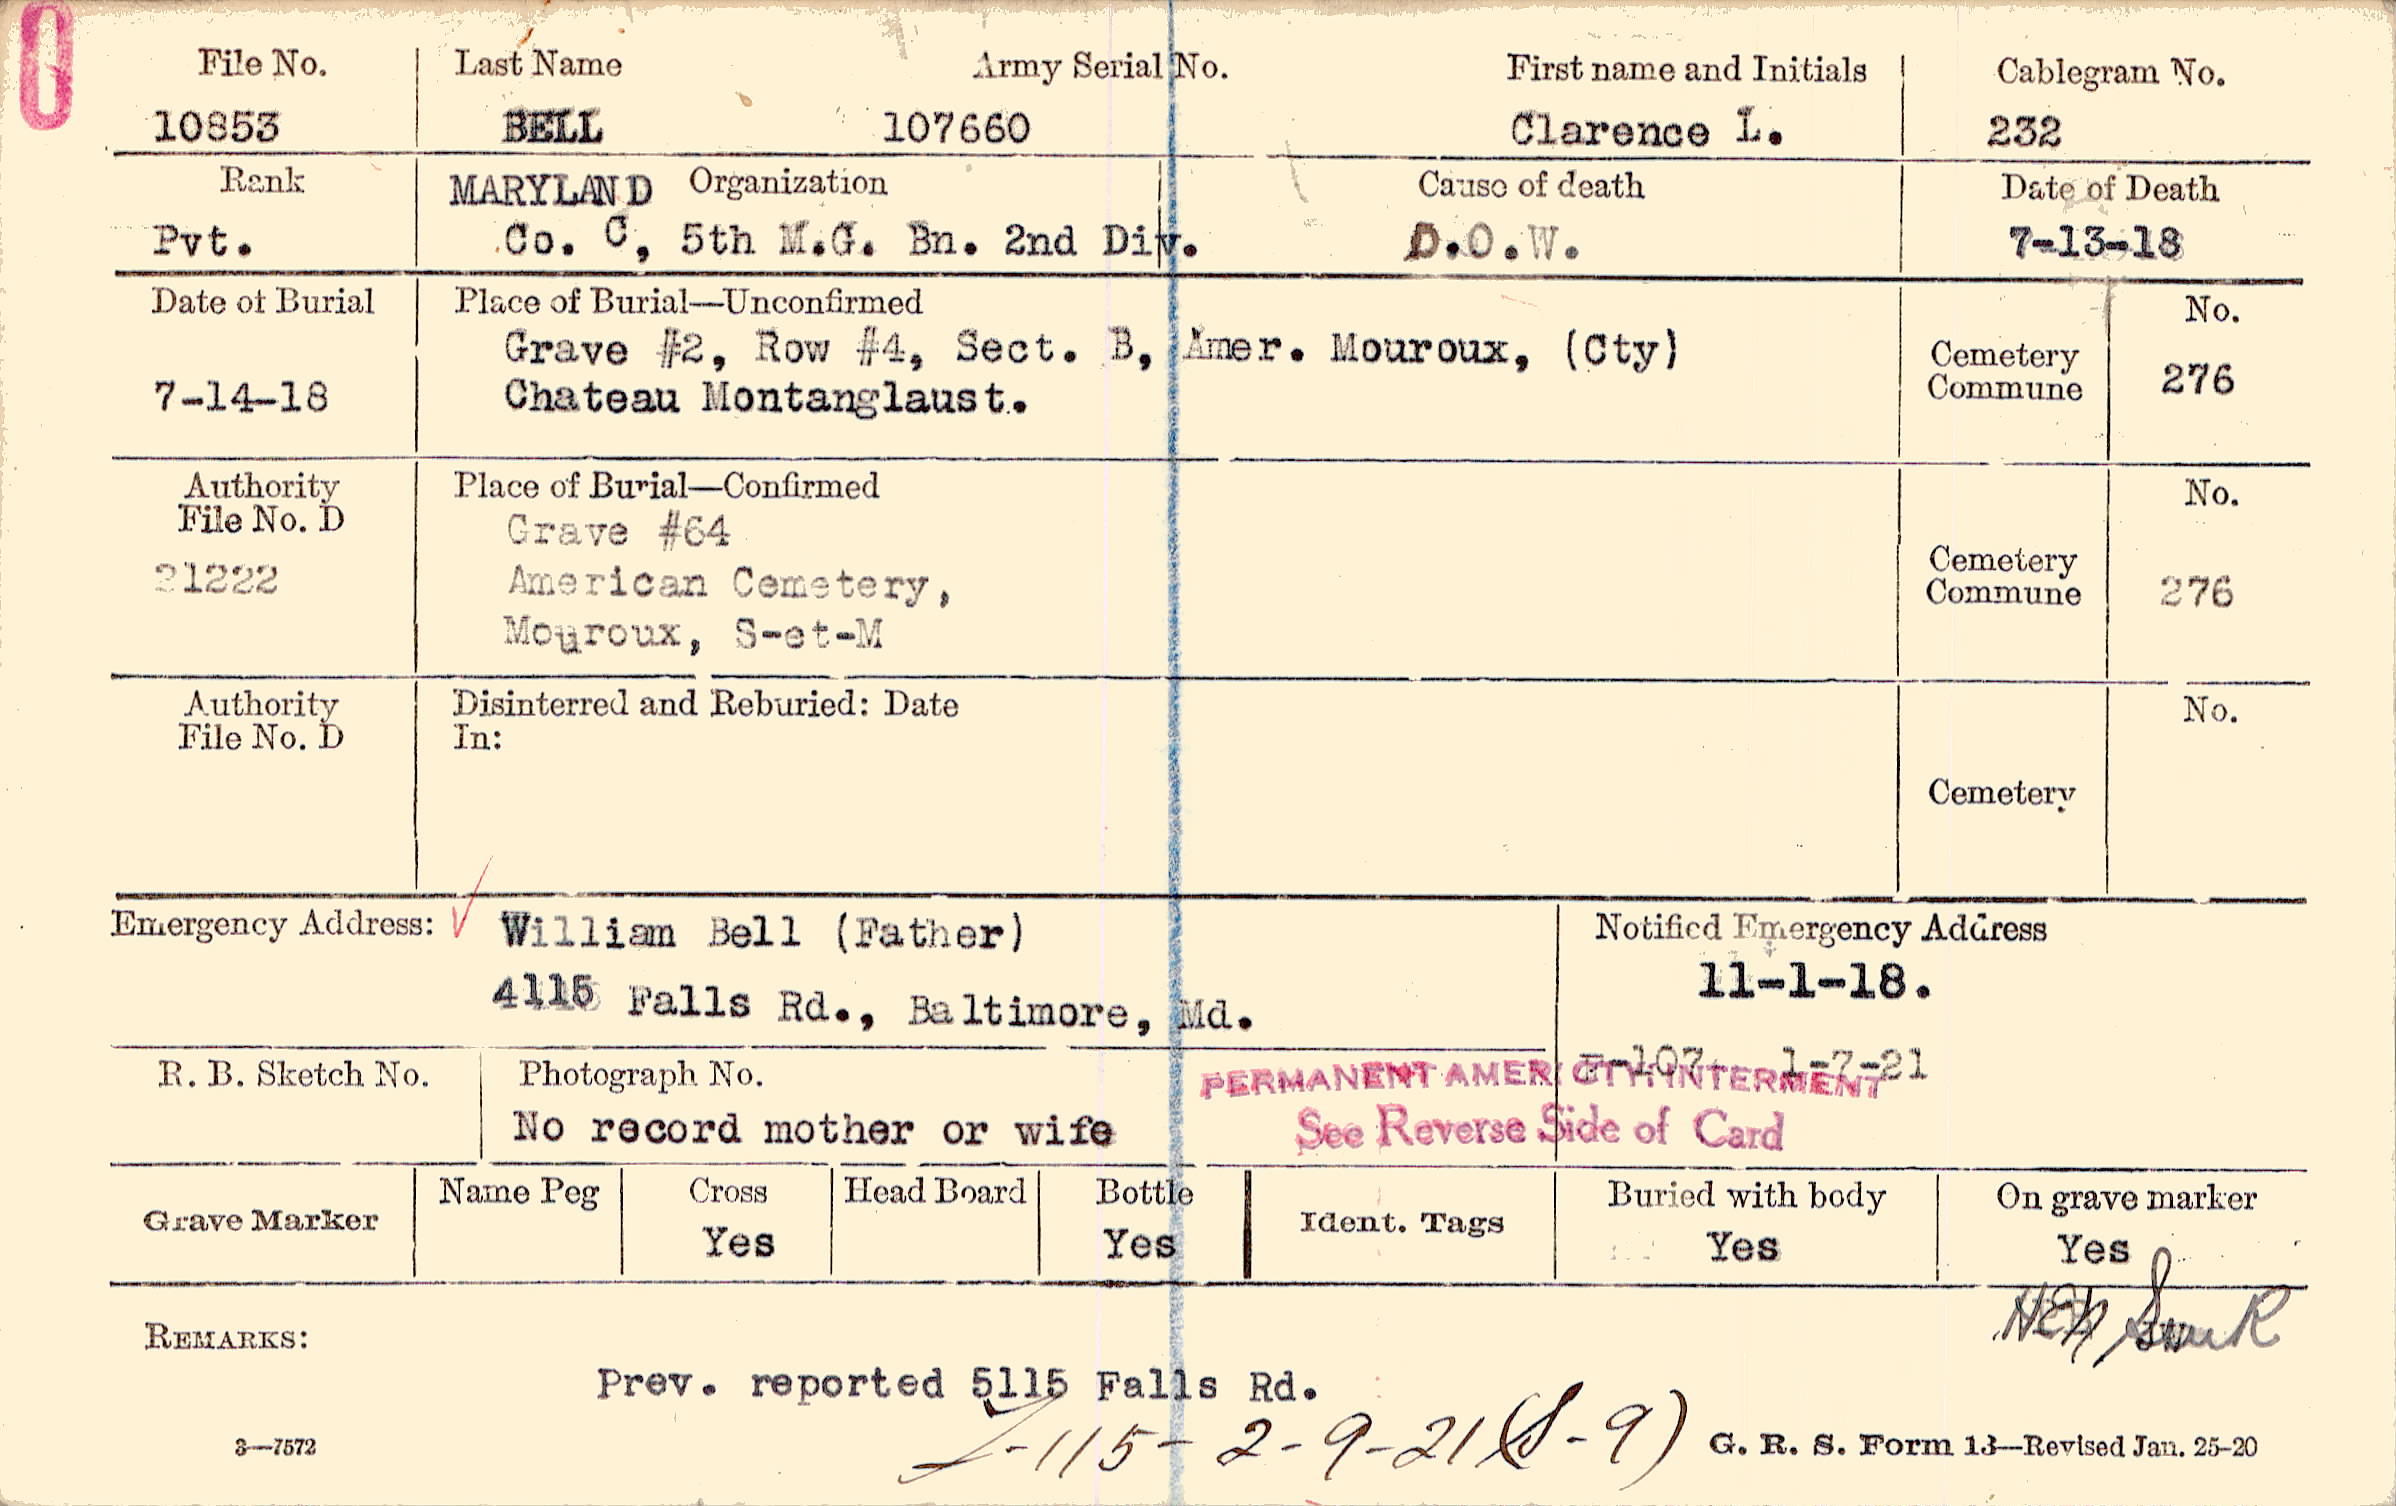 File No. Last Name Army Serial No. First name and Initials Cablegram No.
10853 BELL 107660 Clarence L. 232
Rank MARYLAND Organization Cause of death Date of Death
Pvt. Co. C, 5th M.G. Bn. 2nd Div. D.O.W. 7-13-18
Date of Burial Place of Burial—Unconfirmed No.
Grave #2, Row #4, Sect. B, Amer. Mouroux, (Cty)
7-14-18 Chateau Montanglaust. Cemetery Commune 276
Authority Place of Burial—Confirmed No.
File No. D Grave #64
21222 American Cemetery, Cemetery Commune 276
Mouroux, S-et-M
Authority Disinterred and Reburied: Date No.
File No. D In:
Cemetery
Emergency Address: William Bell (Father) Notified Emergency Address
4115 Falls Rd., Baltimore, Md. 11-1-18.
R. B. Sketch No. Photograph No. 107 1-7-21
PERMANENT AMER. CTY. INTERMENT
No record mother or wife See Reverse Side of Card
Grave Marker Name Peg Cross Head Board Bottle Ident. Tags Buried with body On grave marker
Yes Yes Yes Yes
REMARKS:
Prev. reported 5115 Falls Rd.
-115- 2-9-21 (S-9)
3—7572 G. R. S. Form 13—Revised Jan. 25-20